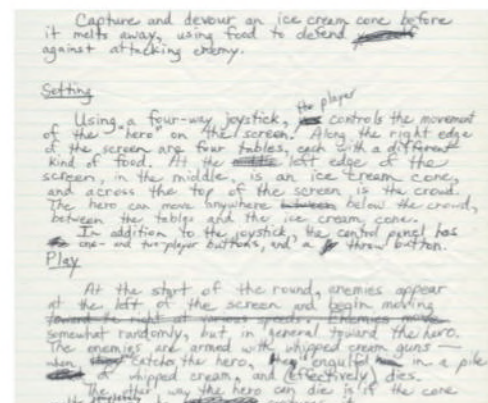 Capture and devour an ice cream cone before
it melts away, using food to defend
against attacking enemy.
Setting
Using a four-way joystick, the player controls the movement
of the "hero" on the screen. Along the right edge
of the screen are four tables, each with a different
kind of food. At the left edge of the
screen, in the middle, is an ice cream cone,
and across the top of the screen is the crowd.
The hero can move anywhere between below the crowd,
between the tables and the ice cream cone.
In addition to the joystick, the control panel has
one- and two-player buttons, and a throw button.
Play
At the start of the round, enemies appear
at the left of the screen and begin moving
toward the right at various speeds. Enemies move
somewhat randomly, but in general toward the hero.
The enemies are armed with whipped cream guns —
when catches the hero, engulfs in a pile
of whipped cream, and (effectively) dies.
The other way the hero can die is if the cone
completely